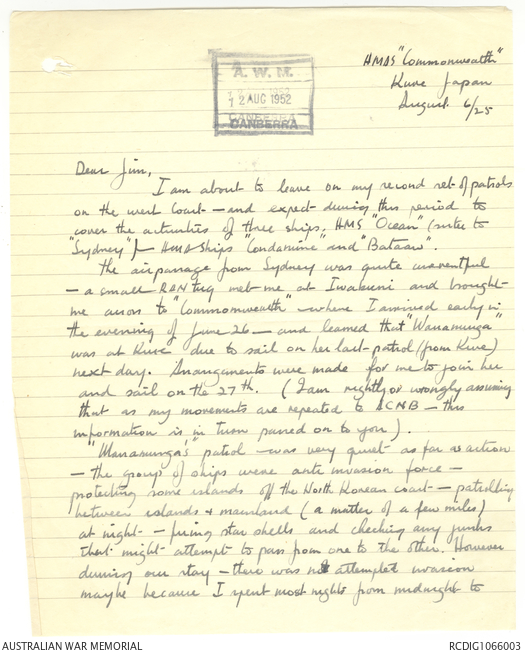 HMAS "Commonwealth"
Kure Japan
August 6/25
A. W. M.
12 AUG 1952
CANBERRA
Dear Jim,
I am about to leave on my second set of patrols
on the west Coast – and expect during this period to
cover the activities of three ships, HMS "Ocean" (sister to
"Sydney") – HMA Ships "Condamine" and "Bataan".
The air passage from Sydney was quite uneventful
– a small RAN tug met me at Iwakuni and brought
me across to "Commonwealth" – where I arrived early in
the evening of June 26 – and learned that "Warramunga"
was at Kure due to sail on her last patrol (from Kure)
next day. Arrangements were made for me to join her
and sail on the 27th. (I am rightly or wrongly assuming
that as my movements are repeated to ACNB – this
information is in turn passed on to you).
"Warramunga's" patrol was very quiet as far as action
– the group of ships were anti invasion force –
protecting some islands off the North Korean coast – patrolling
between islands & mainland (a matter of a few miles)
at night – firing star shells and checking any junks
that might attempt to pass from one to the other. However
during our stay – there was no attempted invasion
maybe because I spent most nights from midnight to
AUSTRALIAN WAR MEMORIAL
RCDIG1066003